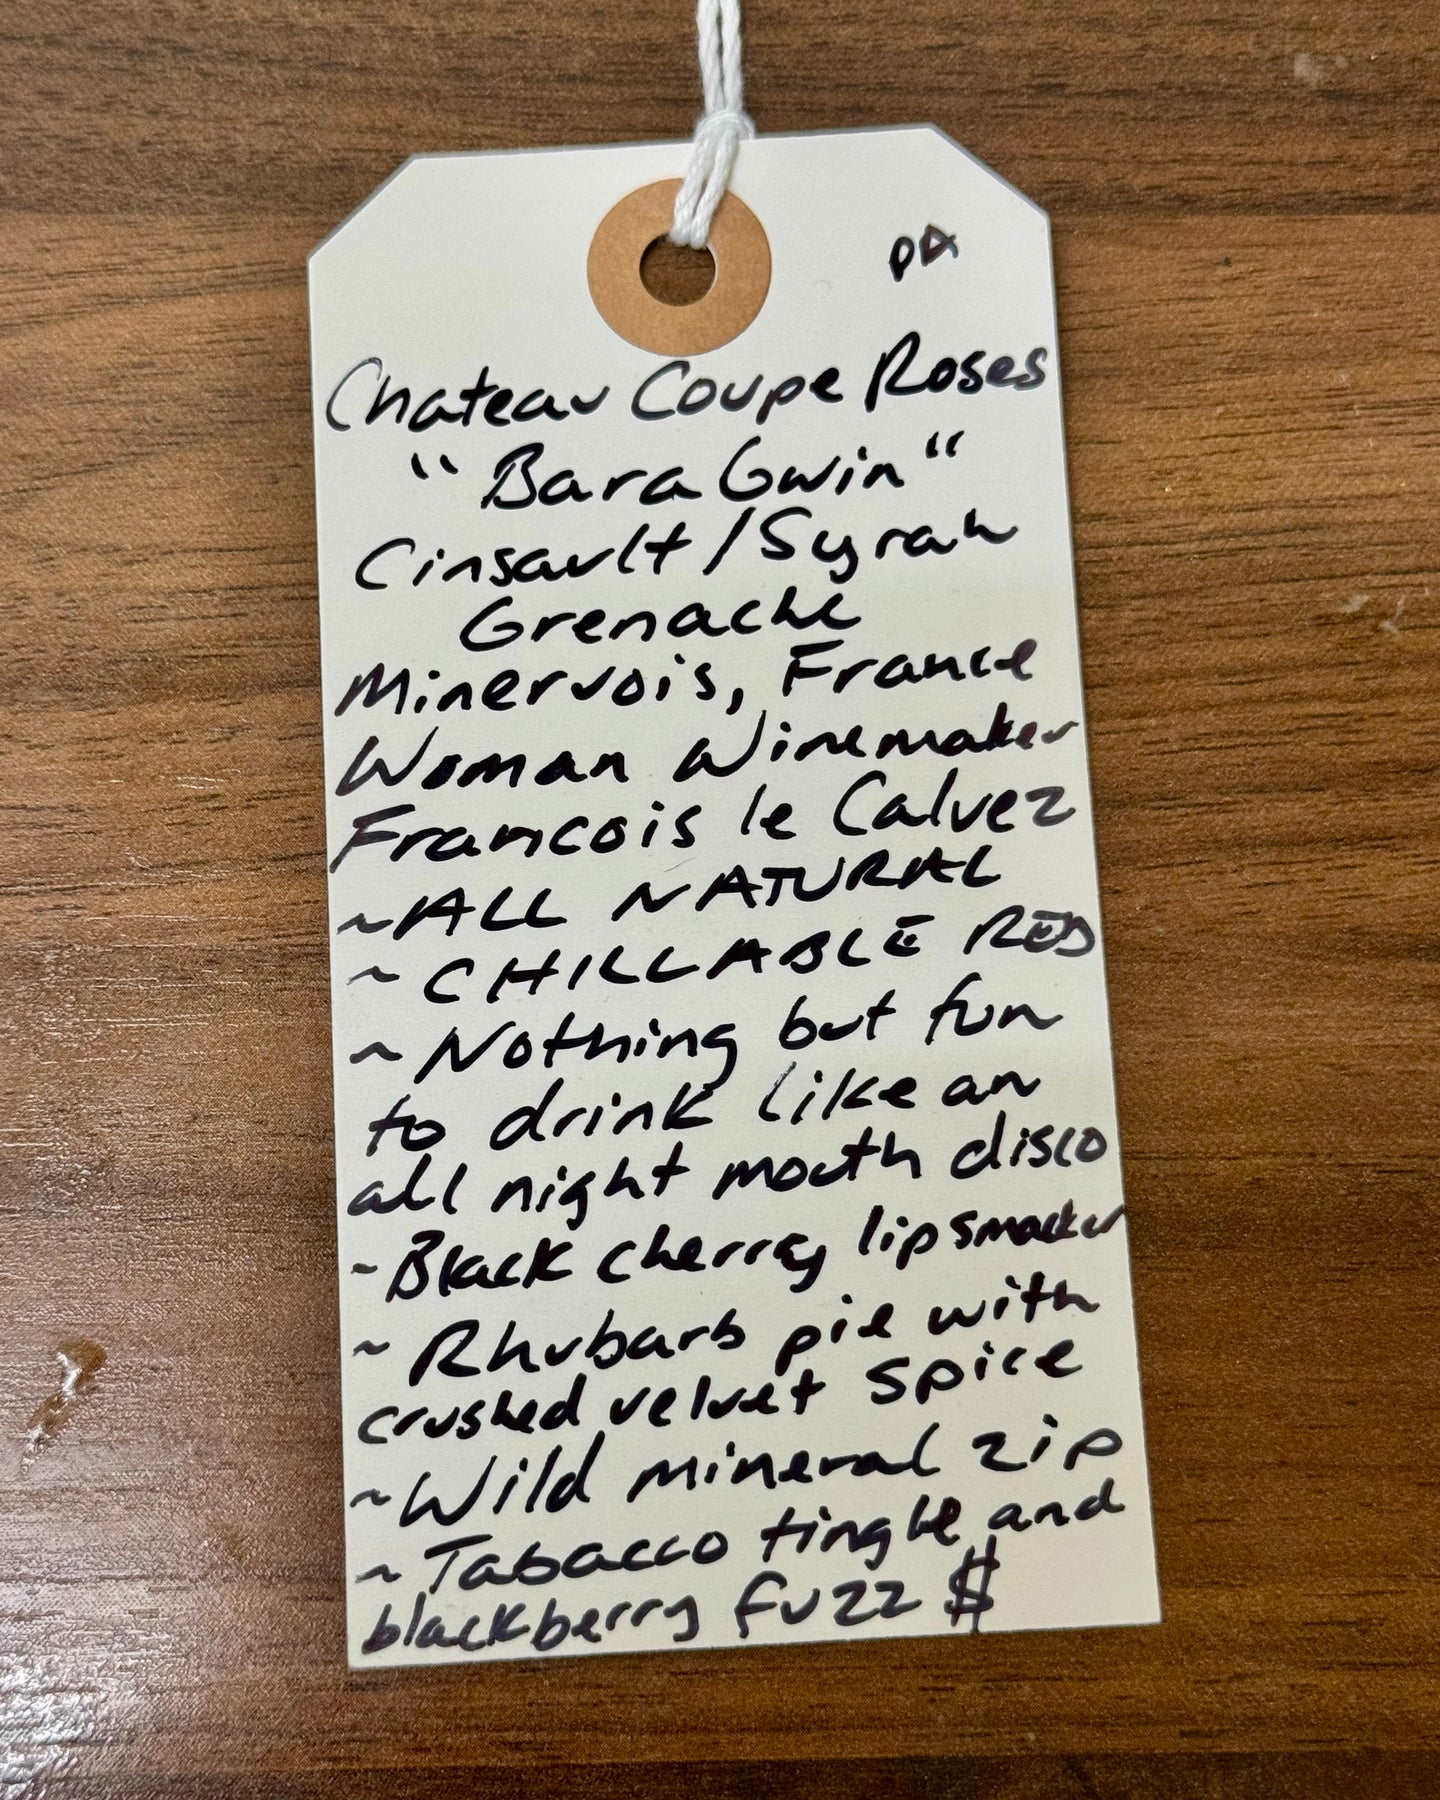 PA
Chateau Coupe Roses
"Bara Gwin"
Cinsault/Syrah
Grenache
Minervois, France
Woman Winemaker
Francois le Calvez
~ALL NATURAL
~CHILLABLE RED
~Nothing but fun
to drink like an
all night mouth disco
~Black cherry lipsmacker
~Rhubarb pie with
crushed velvet spice
~Wild mineral zip
~Tabacco tingle and
blackberry fuzz $